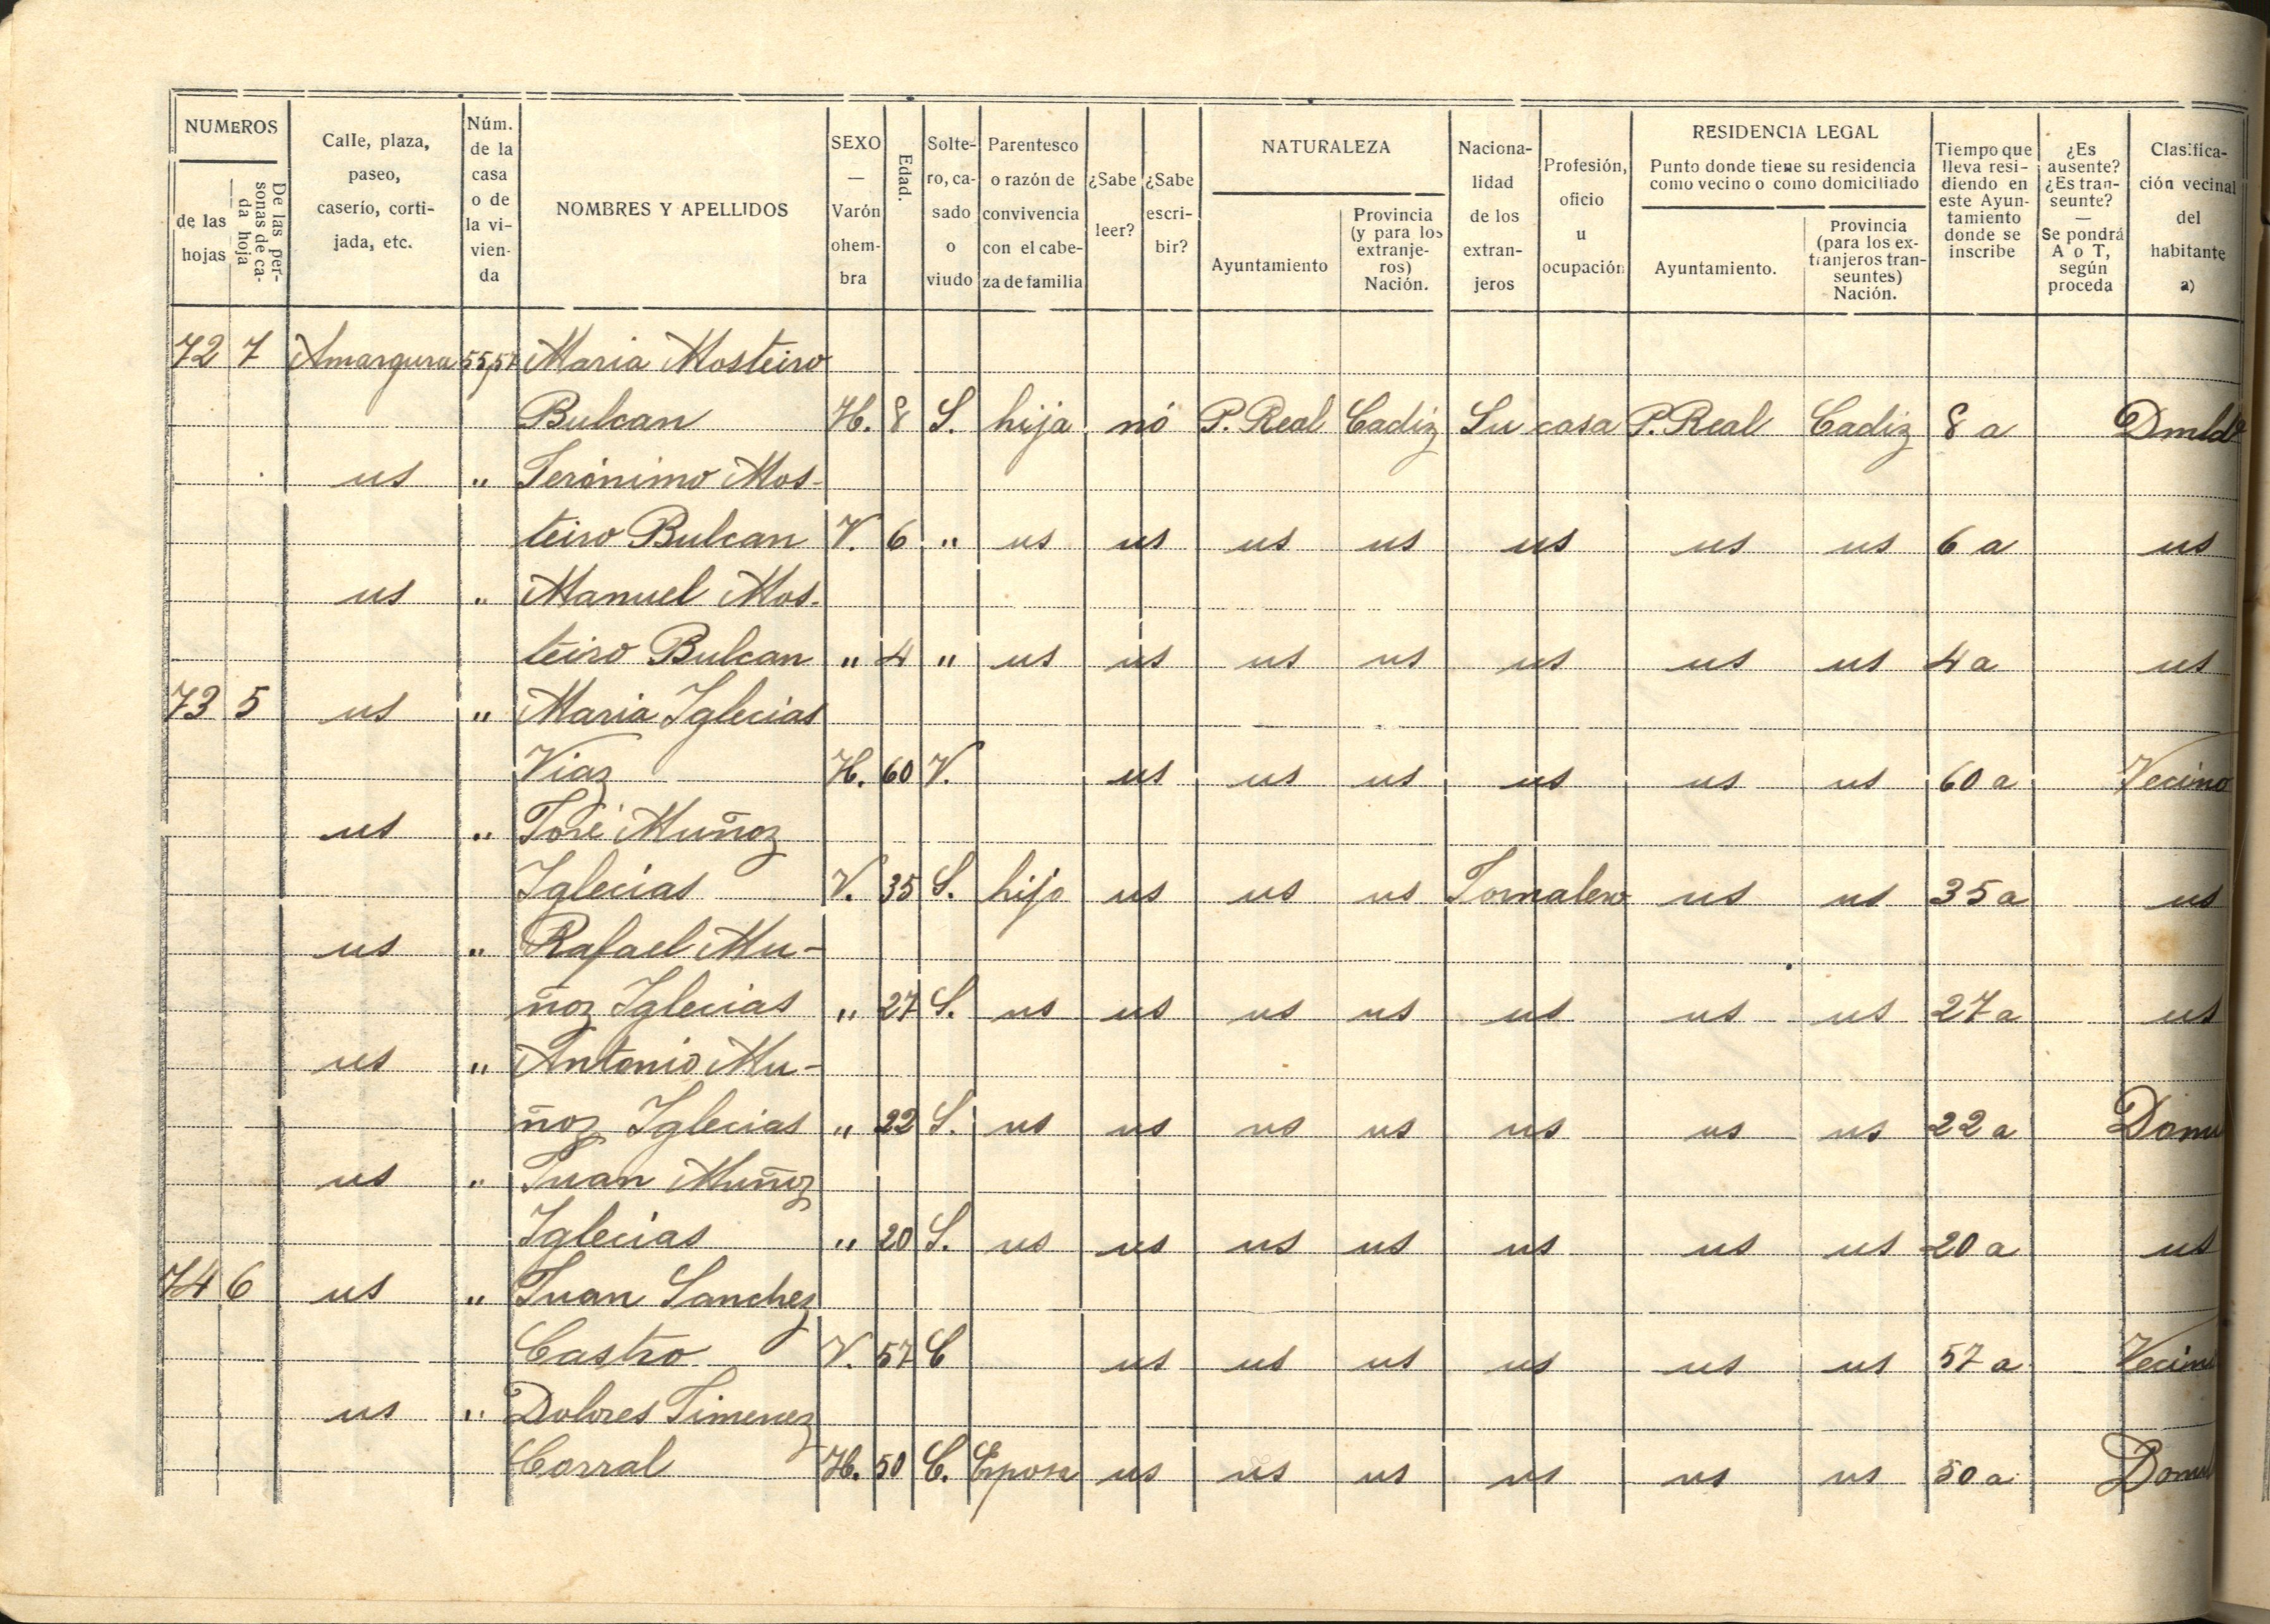 NUMEROS
de las hojas
De las personas de cada hoja
Calle, plaza, paseo, caserío, cortijada, etc.
Núm. de la casa o de la vivienda
NOMBRES Y APELLIDOS
SEXO — Varón o hembra
Edad.
Soltero, casado o viudo
Parentesco o razón de convivencia con el cabeza de familia
¿Sabe leer?
¿Sabe escribir?
NATURALEZA
Ayuntamiento
Provincia (y para los extranjeros) Nación.
Nacionalidad de los extranjeros
Profesión, oficio u ocupación
RESIDENCIA LEGAL
Punto donde tiene su residencia como vecino o como domiciliado
Ayuntamiento.
Provincia (para los extranjeros transeuntes) Nación.
Tiempo que lleva residiendo en este Ayuntamiento donde se inscribe
¿Es ausente? ¿Es transeunte? — Se pondrá A o T, según proceda
Clasificación vecinal del habitante a)
72 7 Amargura 55,57 Maria Mosteiro
Bulcan H. 8 S. hija nó P. Real Cadiz Su casa P. Real Cadiz 8 a Dmldº
us " Jerónimo Mos-
teiro Bulcan V. 6 " us us us us us us us 6 a us
us " Manuel Mos-
teiro Bulcan " 4 " us us us us us us us 4 a us
73 5 us " Maria Iglecias
Viaz H. 60 V. us us us us us us 60 a Vecino
us " José Muñoz
Iglecias V. 35 S. hijo us us us Jornalero us us 35 a us
us " Rafael Mu-
ñoz Iglecias " 27 S. us us us us us us us 27 a us
us " Antonio Mu-
ñoz Iglecias " 22 S. us us us us us us us 22 a Domi
us " Juan Muñoz
Iglecias " 20 S. us us us us us us us 20 a us
74 6 us " Juan Sanchez
Castro V. 57 C us us us us us us 57 a Vecino
us " Dolores Jimenez
Corral H. 50 C. Esposa us us us us us us 50 a Domil